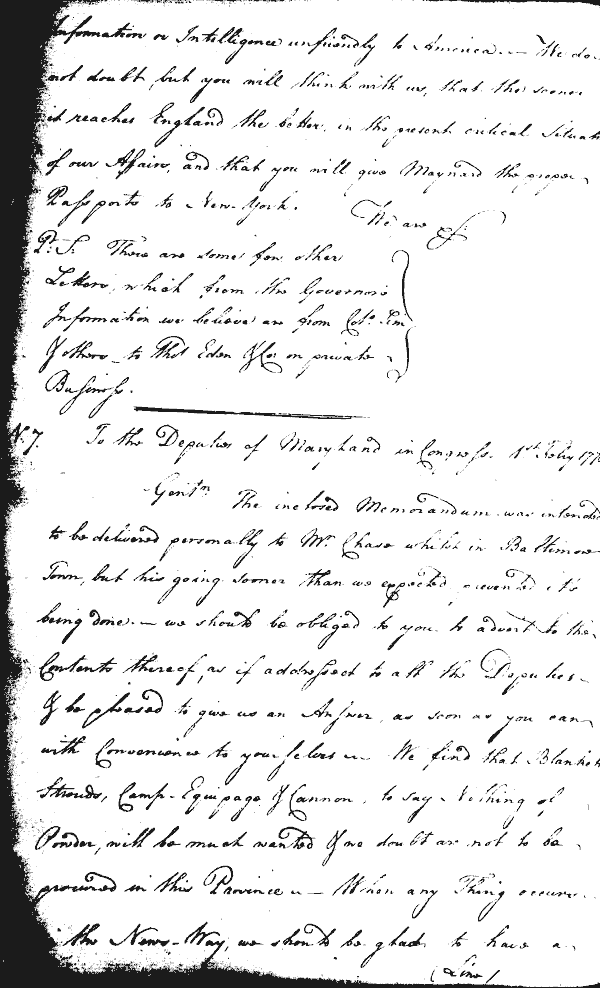 Information or Intelligence unfriendly to America. — We do
not doubt, but you will think with us, that the sooner
it reaches England the better, in the present critical Situat
of our Affairs, and that you will give Maynard the proper
Passports to New-York. We are &c.
P.S. There are some few other
Letters, which from the Governors
Information we believe are from Colo. Fim
& others to Thos Eden &Co on private
Business.
No. 7. To the Deputies of Maryland in Congress. 1st Feby 177
Gentn. The inclosed Memorandum was intended
to be delivered personally to Mr. Chase whilst in Baltimore
Town, but his going sooner than we expected prevented it's
being done. — we should be obliged to you to advert to the
Contents thereof, as if addressed to all the Deputies
& be pleased to give us an Answer, as soon as you can
with Convenience to yourselves — We find that Blankets
Strouds, Camp-Equipage & Cannon, to say Nothing of
Powder, will be much wanted & we doubt are not to be
procured in this Province — When any Thing occurs
the News-Way, we should be glad to have a
(Line)